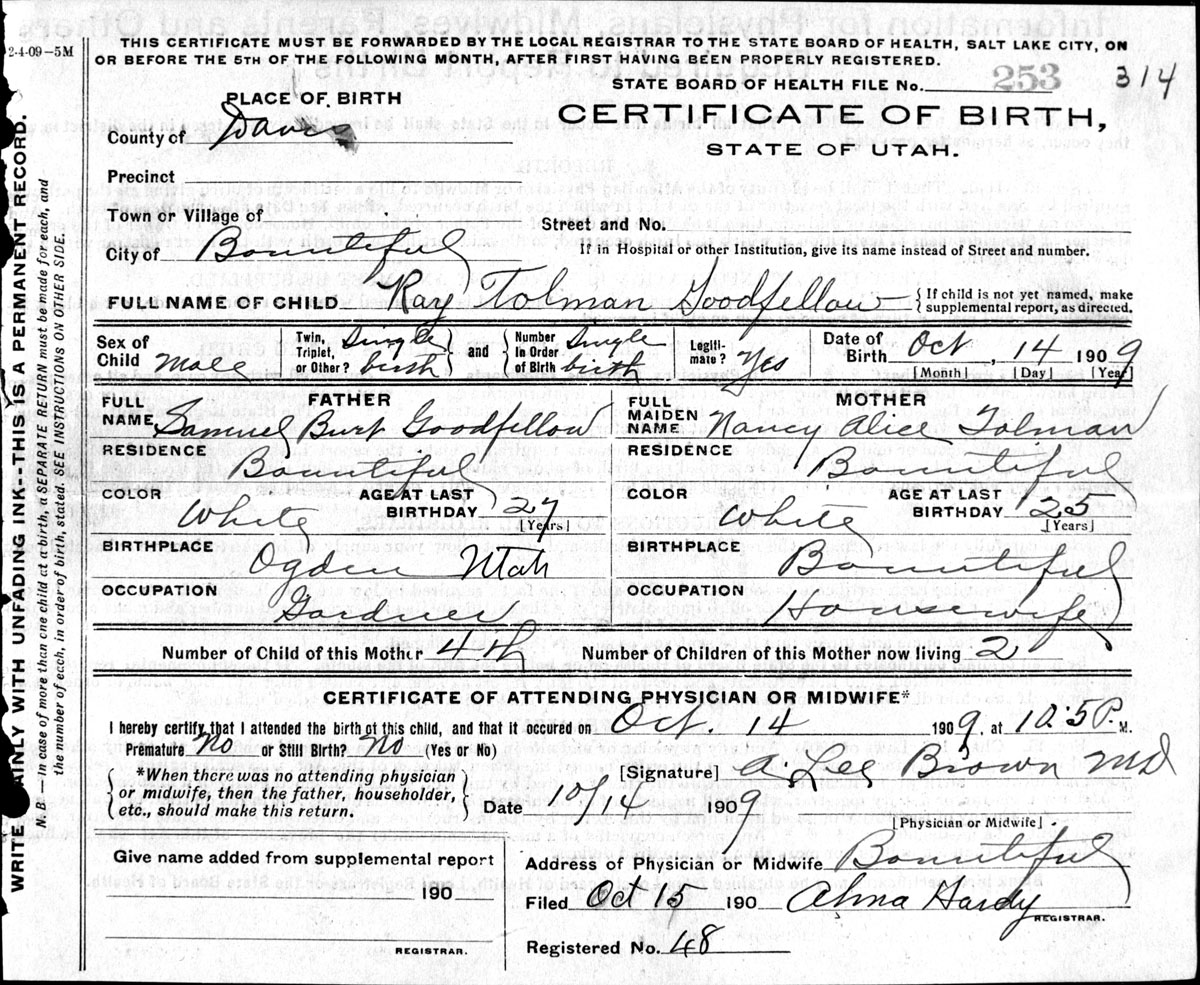 2-4-09-5M
THIS CERTIFICATE MUST BE FORWARDED BY THE LOCAL REGISTRAR TO THE STATE BOARD OF HEALTH, SALT LAKE CITY, ON
OR BEFORE THE 5TH OF THE FOLLOWING MONTH, AFTER FIRST HAVING BEEN PROPERLY REGISTERED.
STATE BOARD OF HEALTH FILE No. 253 314
PLACE OF BIRTH
CERTIFICATE OF BIRTH,
STATE OF UTAH.
County of Davis
Precinct
Town or Village of
Street and No.
City of Bountiful
If in Hospital or other Institution, give its name instead of Street and number.
FULL NAME OF CHILD Ray Tolman Goodfellow {If child is not yet named, make
supplemental report, as directed.
Sex of Child Male
Twin, Triplet, or Other? Single birth
and
Number in Order of Birth Single birth
Legiti-mate? Yes
Date of Birth Oct, 14 1909
[Month] [Day] [Year]
FATHER
FULL NAME Samuel Burt Goodfellow
RESIDENCE Bountiful
COLOR White AGE AT LAST BIRTHDAY 27 [Years]
BIRTHPLACE Ogden Utah
OCCUPATION Gardner
MOTHER
FULL MAIDEN NAME Nancy Alice Tolman
RESIDENCE Bountiful
COLOR White AGE AT LAST BIRTHDAY 25 [Years]
BIRTHPLACE Bountiful
OCCUPATION Housewife
Number of Child of this Mother 4th Number of Children of this Mother now living 2
CERTIFICATE OF ATTENDING PHYSICIAN OR MIDWIFE*
I hereby certify that I attended the birth of this child, and that it occured on Oct. 14 1909, at P. M.
Premature No or Still Birth? No (Yes or No)
{*When there was no attending physician
or midwife, then the father, householder,
etc., should make this return.}
[Signature] A. Lee Brown MD
Date 10/14 1909
[Physician or Midwife]
Give name added from supplemental report
190
REGISTRAR.
Address of Physician or Midwife Bountiful
Filed Oct 15 190 Alma Hardy
REGISTRAR.
Registered No. 48
WRITE PLAINLY WITH UNFADING INK--THIS IS A PERMANENT RECORD.
N. B.—In case of more than one child at a birth, a SEPARATE RETURN must be made for each, and
the number of each, in order of birth, stated. SEE INSTRUCTIONS ON OTHER SIDE.